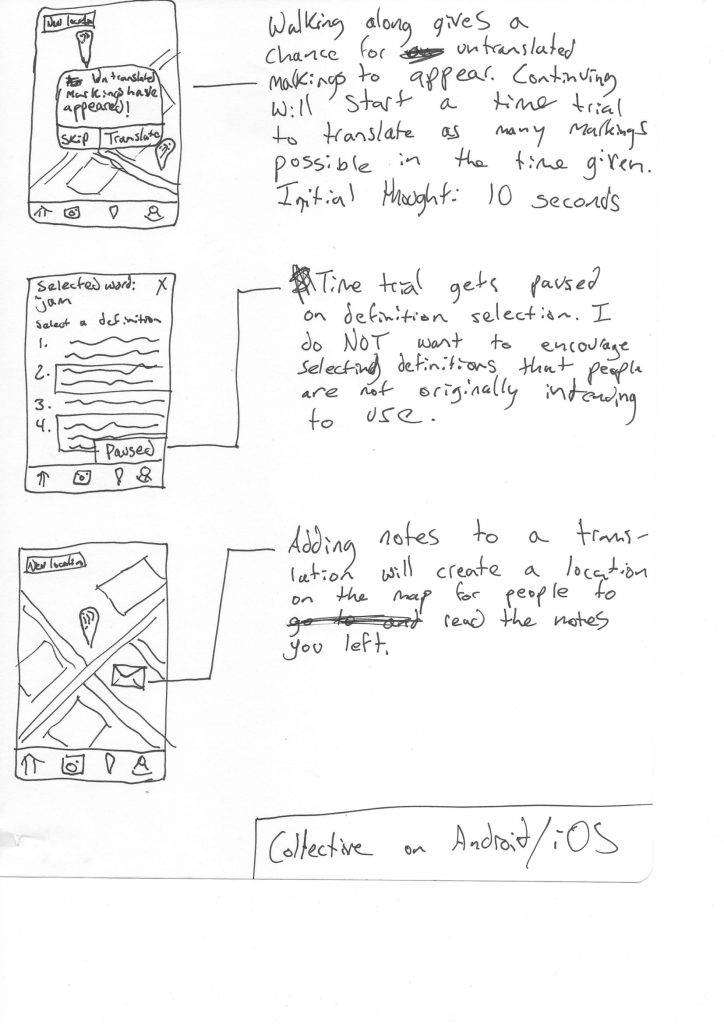 New location
Untranslated
Markings have
appeared!
Skip
Translate
Walking along gives a
chance for untranslated
markings to appear. Continuing
will start a time trial
to translate as many markings
possible in the time given.
Initial thought: 10 seconds
Selected word: X
jam
Select a definition
1.
2.
3.
4.
Paused
Time trial gets paused
on definition selection. I
do NOT want to encourage
selecting definitions that people
are not originally intending
to use.
New location
Adding notes to a trans-
lation will create a location
on the map for people to
go to and read the notes
you left.
Collective on Android/iOS